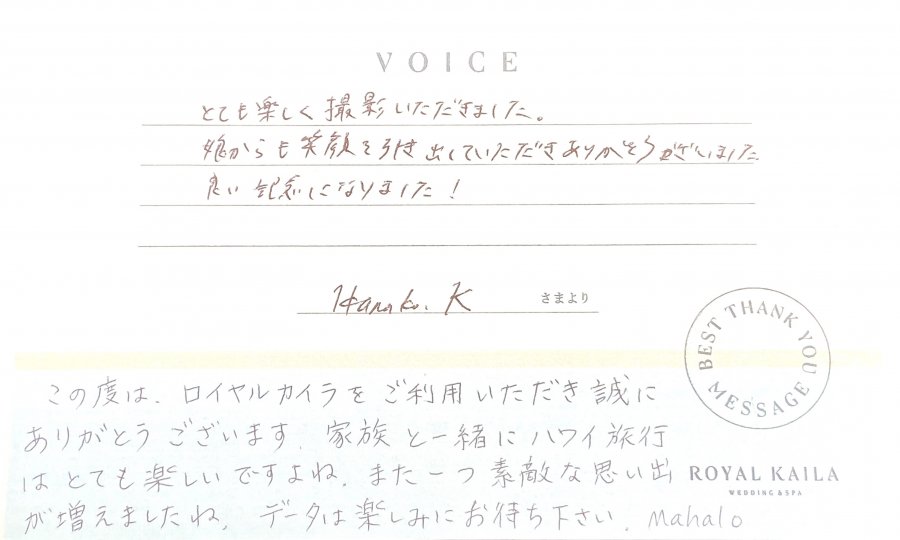 VOICE
とても楽しく撮影いただきました。
娘からも笑顔を引き出していただきありがとうございました
良い記念になりました！
Hanako. K さまより
BEST THANK YOU MESSAGE
この度は、ロイヤルカイラをご利用いただき誠に
ありがとうございます。家族と一緒にハワイ旅行
はとても楽しいですよね。また一つ素敵な思い出
ROYAL KAILA
WEDDING & SPA
が増えましたね。データは楽しみにお待ち下さい。Mahalo